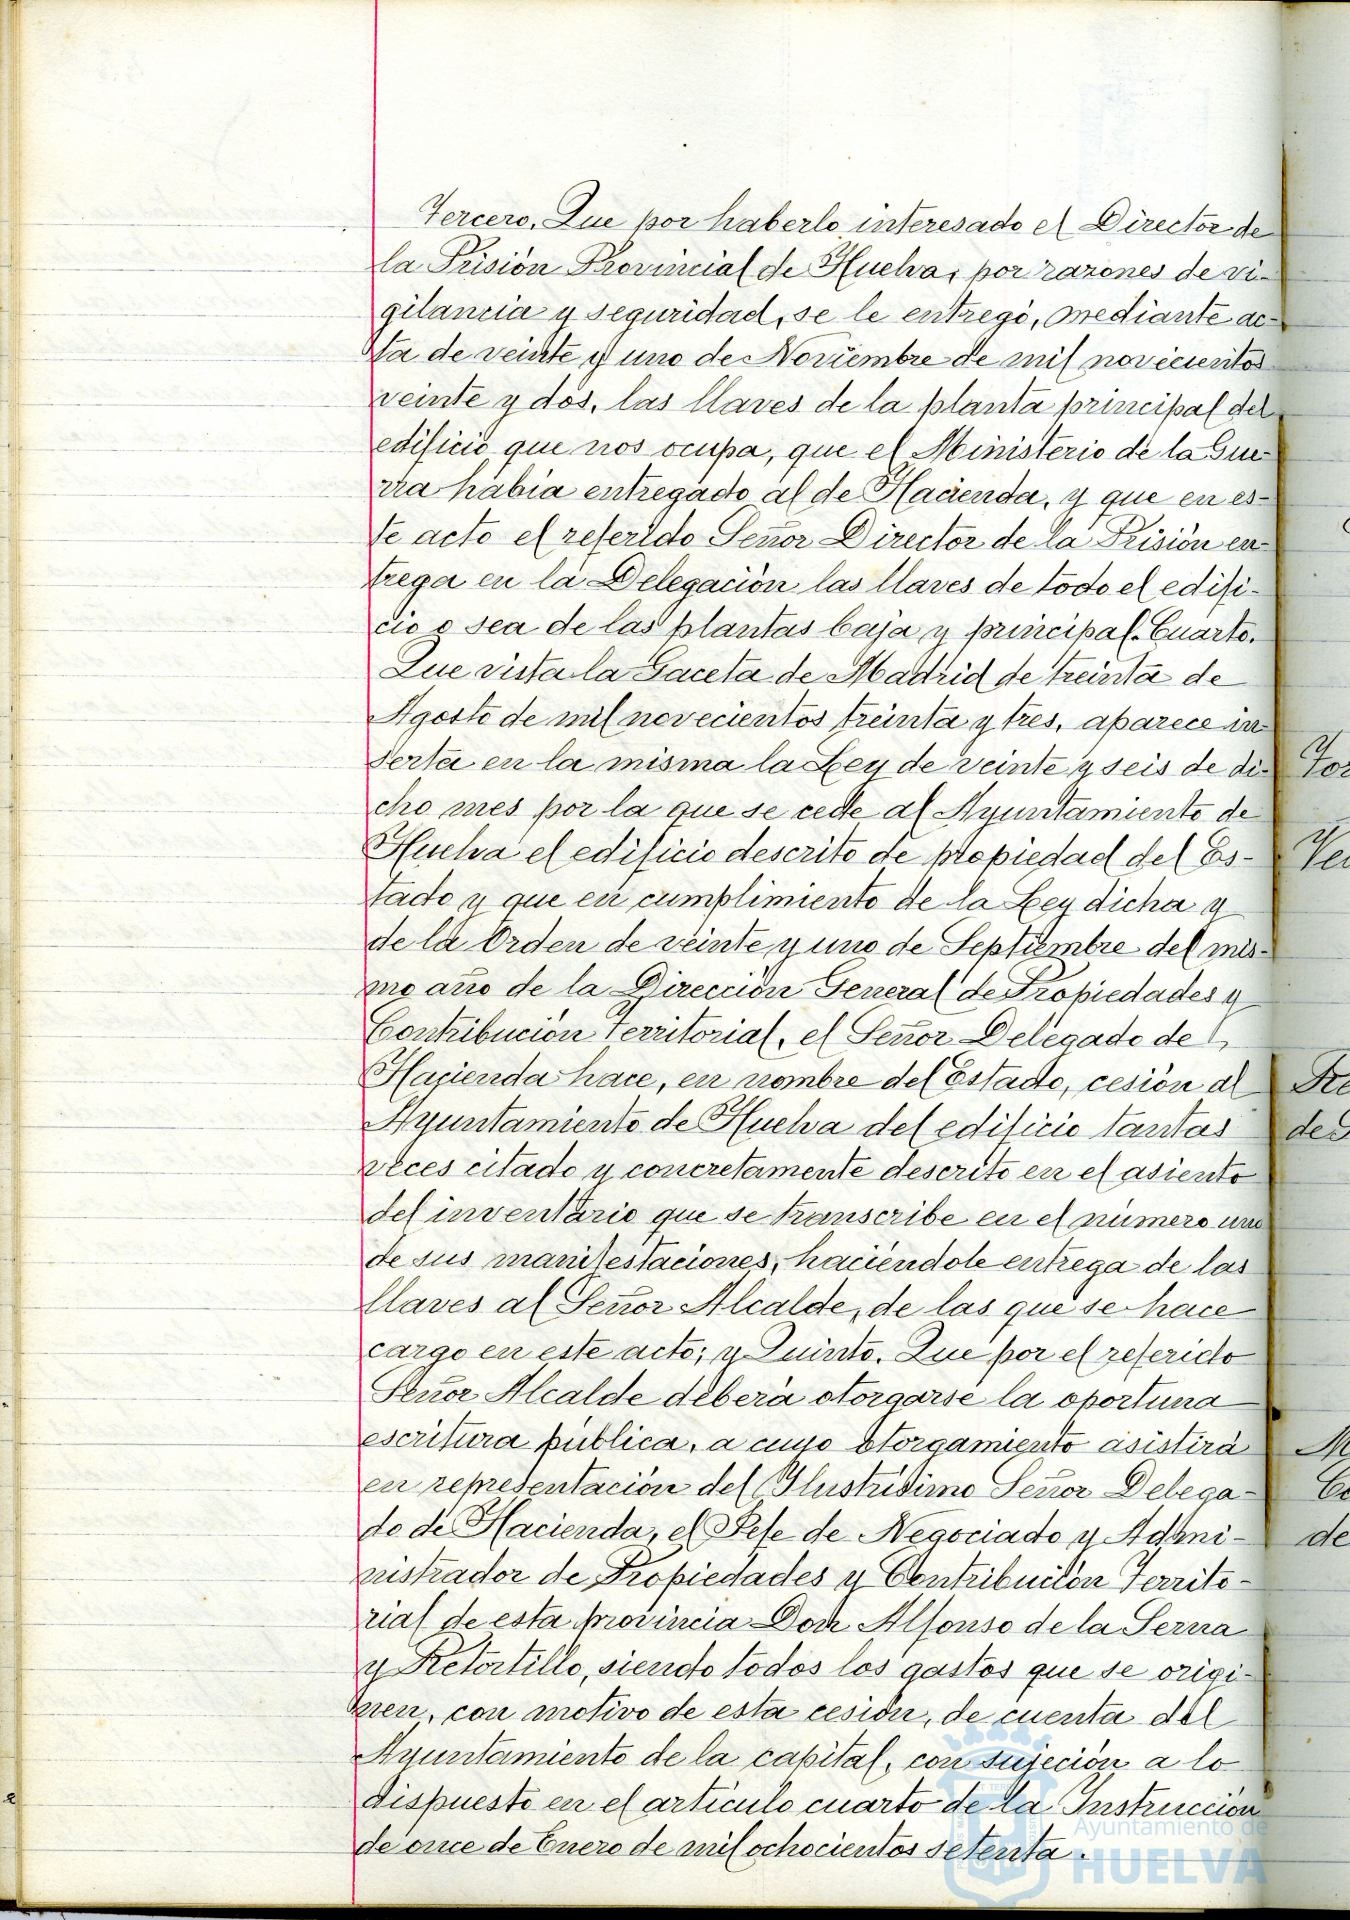 Tercero. Que por haberlo interesado el Director de
la Prisión Provincial de Huelva, por razones de vi-
gilancia y seguridad, se le entregó, mediante ac-
ta de veinte y uno de Noviembre de mil novecientos
veinte y dos, las llaves de la planta principal del
edificio que nos ocupa, que el Ministerio de la Gue-
rra había entregado al de Hacienda, y que en es-
te acto el referido Señor Director de la Prisión en-
trega en la Delegación las llaves de todo el edifi-
cio o sea de las plantas baja y principal. Cuarto.
Que vista la Gaceta de Madrid de treinta de
Agosto de mil novecientos treinta y tres, aparece in-
serta en la misma la Ley de veinte y seis de di-
cho mes por la que se cede al Ayuntamiento de
Huelva el edificio descrito de propiedad del Es-
tado y que en cumplimiento de la Ley dicha y
de la Orden de veinte y uno de Septiembre del mis-
mo año de la Dirección General de Propiedades y
Contribución Territorial, el Señor Delegado de
Hacienda hace, en nombre del Estado, cesión al
Ayuntamiento de Huelva del edificio tantas
veces citado y concretamente descrito en el asiento
del inventario que se transcribe en el número uno
de sus manifestaciones, haciéndole entrega de las
llaves al Señor Alcalde, de las que se hace
cargo en este acto; y Quinto. Que por el referido
Señor Alcalde deberá otorgarse la oportuna
escritura pública, a cuyo otorgamiento asistirá
en representación del Ilustrísimo Señor Delega-
do de Hacienda, el Jefe de Negociado y Admi-
nistrador de Propiedades y Contribución Territo-
rial de esta provincia Don Alfonso de la Serna
y Retortillo, siendo todos los gastos que se origi-
nen, con motivo de esta cesión, de cuenta del
Ayuntamiento de la capital, con sujeción a lo
dispuesto en el artículo cuarto de la Instrucción
de once de Enero de mil ochocientos setenta.
Ayuntamiento de
HUELVA